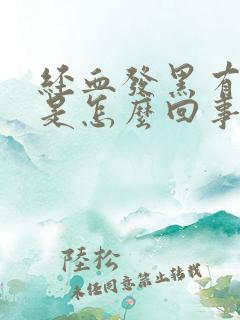 經血發黑有
是怎麼回事
陸松
未经同意禁止转载